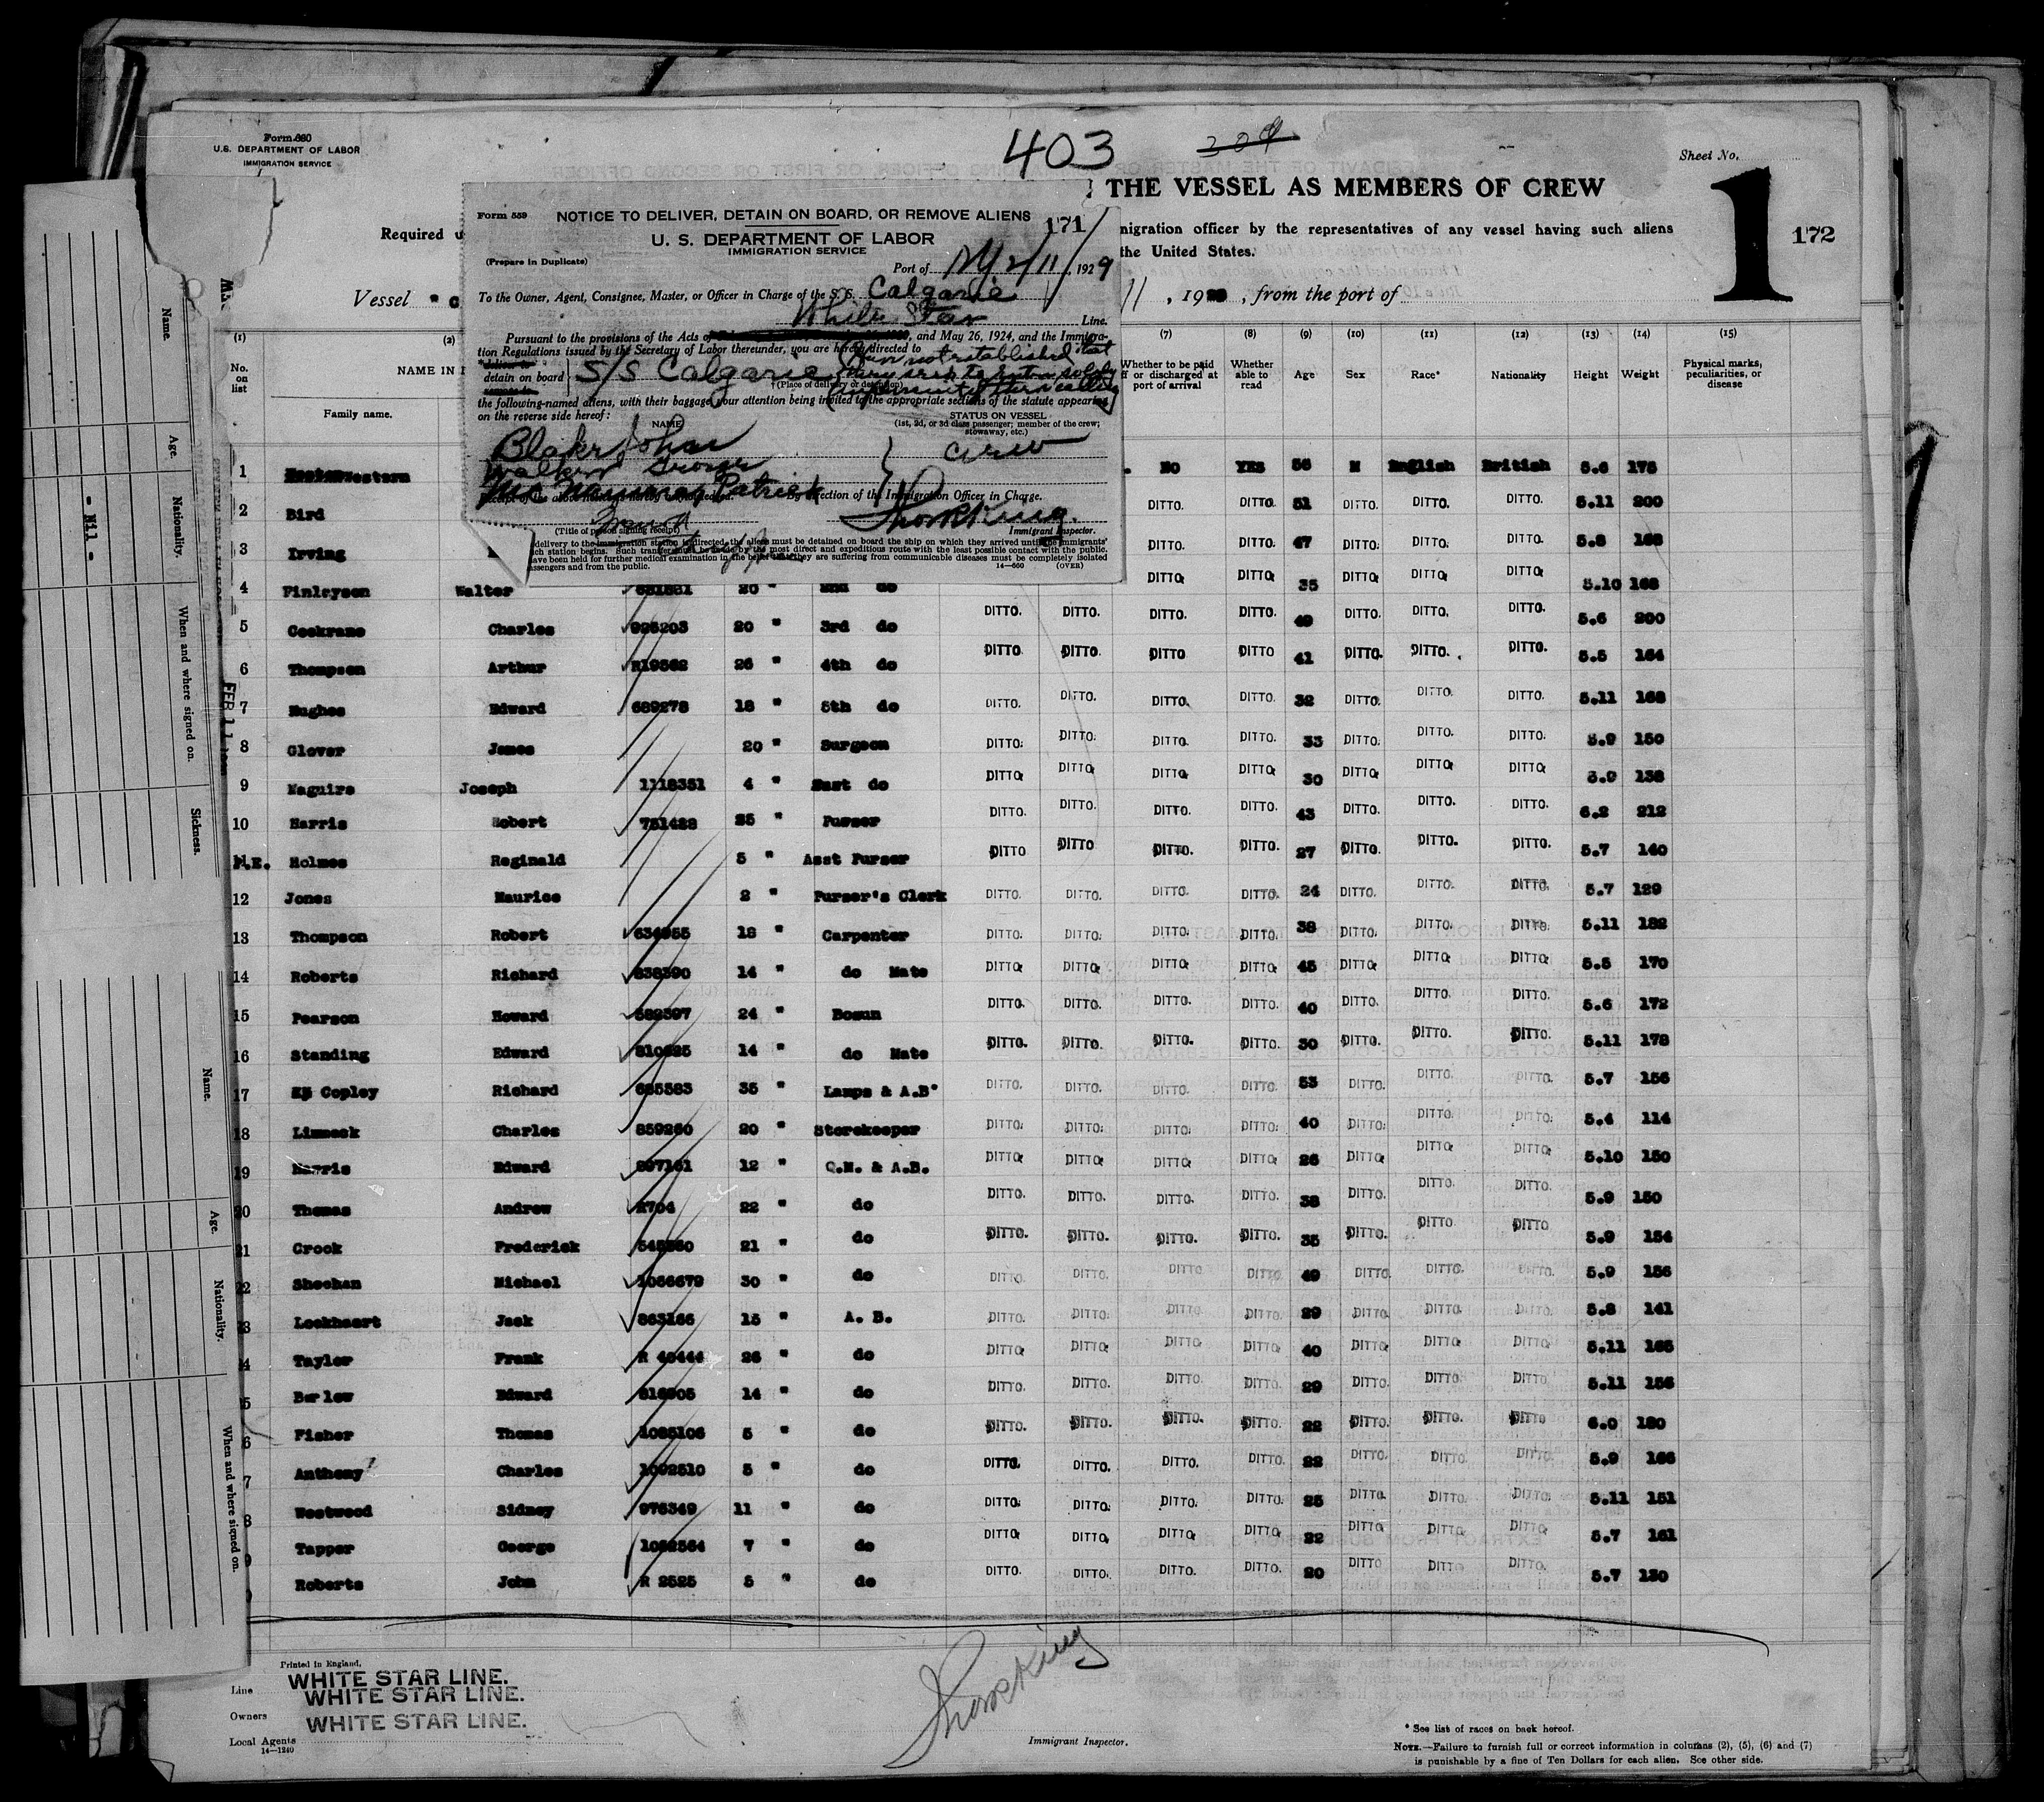 403
Form 680
U.S. DEPARTMENT OF LABOR
IMMIGRATION SERVICE
Sheet No.
1
172
THE VESSEL AS MEMBERS OF CREW
Required u
migration officer by the representatives of any vessel having such aliens
the United States.
Vessel " C
11 , 19 , from the port of
Form 559
NOTICE TO DELIVER, DETAIN ON BOARD, OR REMOVE ALIENS
171
U. S. DEPARTMENT OF LABOR
IMMIGRATION SERVICE
(Prepare in Duplicate)
Port of NY 2/11, 1929
To the Owner, Agent, Consignee, Master, or Officer in Charge of the S. S. Calgaric
White Star Line.
Pursuant to the provisions of the Acts of , and May 26, 1924, and the Immigra-
tion Regulations issued by the Secretary of Labor thereunder, you are hereby directed to
detain on board S/S Calgaric
(Place of delivery or detention)
the following-named aliens, with their baggage, your attention being invited to the appropriate sections of the statute appearing
on the reverse side hereof:
NAME
STATUS ON VESSEL
(1st, 2d, or 3d class passenger; member of the crew;
stowaway, etc.)
Blake John
Walker
Patrick
crew
By direction of the Immigration Officer in Charge.
Thos McKing
(Title of person signing receipt)
Immigrant Inspector.
delivery to the immigration station is directed, the aliens must be detained on board the ship on which they arrived until the immigrants'
such station begins. Such transfer must be made by the most direct and expeditious route with the least possible contact with the public.
have been held for further medical examination in the belief that they are suffering from communicable diseases must be completely isolated
assengers and from the public.
14—660 (OVER)
(1) (2) (7) (8) (9) (10) (11) (12) (13) (14) (15)
No. on list
NAME IN
Family name.
Whether to be paid off or discharged at port of arrival
Whether able to read
Age
Sex
Race*
Nationality
Height
Weight
Physical marks, peculiarities, or disease
1 Western NO YES 56 M English British 5.6 175
2 Bird DITTO. DITTO. 51 DITTO. DITTO. DITTO. 5.11 200
3 Irving DITTO. DITTO. 47 DITTO. DITTO. DITTO. 5.8 168
4 Finlayson Walter 20 " 2nd do DITTO DITTO 35 DITTO DITTO DITTO 5.10 168
5 Cockrane Charles 925203 20 " 3rd do DITTO. DITTO. DITTO. DITTO. 49 DITTO. DITTO. DITTO. 5.6 200
6 Thompson Arthur R19562 26 " 4th do DITTO DITTO. DITTO DITTO 41 DITTO. DITTO. DITTO. 5.5 164
7 Hughes Edward 689278 18 " 5th do DITTO. DITTO. DITTO. DITTO. 32 DITTO. DITTO. DITTO. 5.11 168
8 Glover James 20 " Surgeon DITTO. DITTO. DITTO. DITTO. 33 DITTO. DITTO. DITTO. 5.9 150
9 Maguire Joseph 1118351 4 " do DITTO DITTO DITTO DITTO 30 DITTO DITTO DITTO 5.9 138
10 Harris Robert 751428 25 " Purser DITTO. DITTO. DITTO. DITTO. 43 DITTO. DITTO. DITTO. 6.2 212
M.E. Holmes Reginald 5 " Asst Purser DITTO DITTO DITTO. DITTO. 27 DITTO. DITTO. DITTO. 5.7 140
12 Jones Maurice 2 " Purser's Clerk DITTO. DITTO. DITTO. DITTO. 24 DITTO. DITTO. DITTO. 5.7 129
13 Thompson Robert 634955 18 " Carpenter DITTO. DITTO. DITTO. DITTO. 38 DITTO. DITTO. DITTO. 5.11 182
14 Roberts Richard 838390 14 " do Mate DITTO DITTO DITTO DITTO 45 DITTO DITTO DITTO 5.5 170
15 Pearson Howard 582597 24 " Bosun DITTO. DITTO. DITTO. DITTO. 40 DITTO. DITTO. DITTO. 5.6 172
16 Standing Edward 810625 14 " do Mate DITTO. DITTO. DITTO. DITTO. 30 DITTO. DITTO. DITTO. 5.11 178
17 Copley Richard 685583 35 " Lamps & A.B. DITTO. DITTO. DITTO. DITTO. 53 DITTO. DITTO. DITTO. 5.7 156
18 Charles 859260 20 " Storekeeper DITTO. DITTO. DITTO. DITTO. 40 DITTO. DITTO. DITTO. 5.4 114
19 Harris Edward 12 " Q.M. & A.B. DITTO DITTO DITTO DITTO 26 DITTO DITTO DITTO 5.10 150
20 Thomas Andrew 22 " do DITTO. DITTO. DITTO. DITTO. 38 DITTO. DITTO. DITTO. 5.9 150
21 Crook Frederick 21 " do DITTO. DITTO. DITTO. DITTO. 35 DITTO. DITTO. DITTO 5.9 154
22 Sheehan Michael 1066679 30 " do DITTO. DITTO. DITTO DITTO. 49 DITTO. DITTO. DITTO. 5.9 156
23 Lockheart Jack 863166 15 " A. B. DITTO. DITTO. DITTO. DITTO. 29 DITTO. DITTO. DITTO. 5.8 141
4 Tayler Frank R 40444 26 " do DITTO DITTO DITTO DITTO 40 DITTO DITTO DITTO 5.11 165
5 Barlow Edward 816905 14 " do DITTO. DITTO. DITTO. DITTO. 29 DITTO. DITTO. DITTO. 5.11 156
6 Fisher Thomas 1085106 5 " do DITTO. DITTO. DITTO. DITTO. 22 DITTO. DITTO. DITTO 6.0 180
7 Anthony Charles 1092510 5 " do DITTO. DITTO. DITTO. DITTO. 22 DITTO. DITTO. DITTO. 5.9 166
8 Westwood Sidney 976349 11 " do DITTO. DITTO. DITTO. DITTO. 25 DITTO. DITTO. DITTO. 5.11 151
9 Tapper George 1082564 7 " do DITTO DITTO DITTO DITTO 22 DITTO DITTO DITTO 5.7 161
Roberts John R 2525 5 " do DITTO. DITTO. DITTO. DITTO. 20 DITTO DITTO DITTO. 5.7 130
Name.
Age.
Nationality.
When and where signed on.
Sickness.
- Nil -
FEB 11
Name.
Age.
Nationality.
When and where signed on.
Printed in England.
Line WHITE STAR LINE.
WHITE STAR LINE.
Owners WHITE STAR LINE.
Local Agents
14—1240
Thos McKing
Immigrant Inspector.
* See list of races on back hereof.
NOTE.—Failure to furnish full or correct information in columns (2), (5), (6) and (7)
is punishable by a fine of Ten Dollars for each alien. See other side.